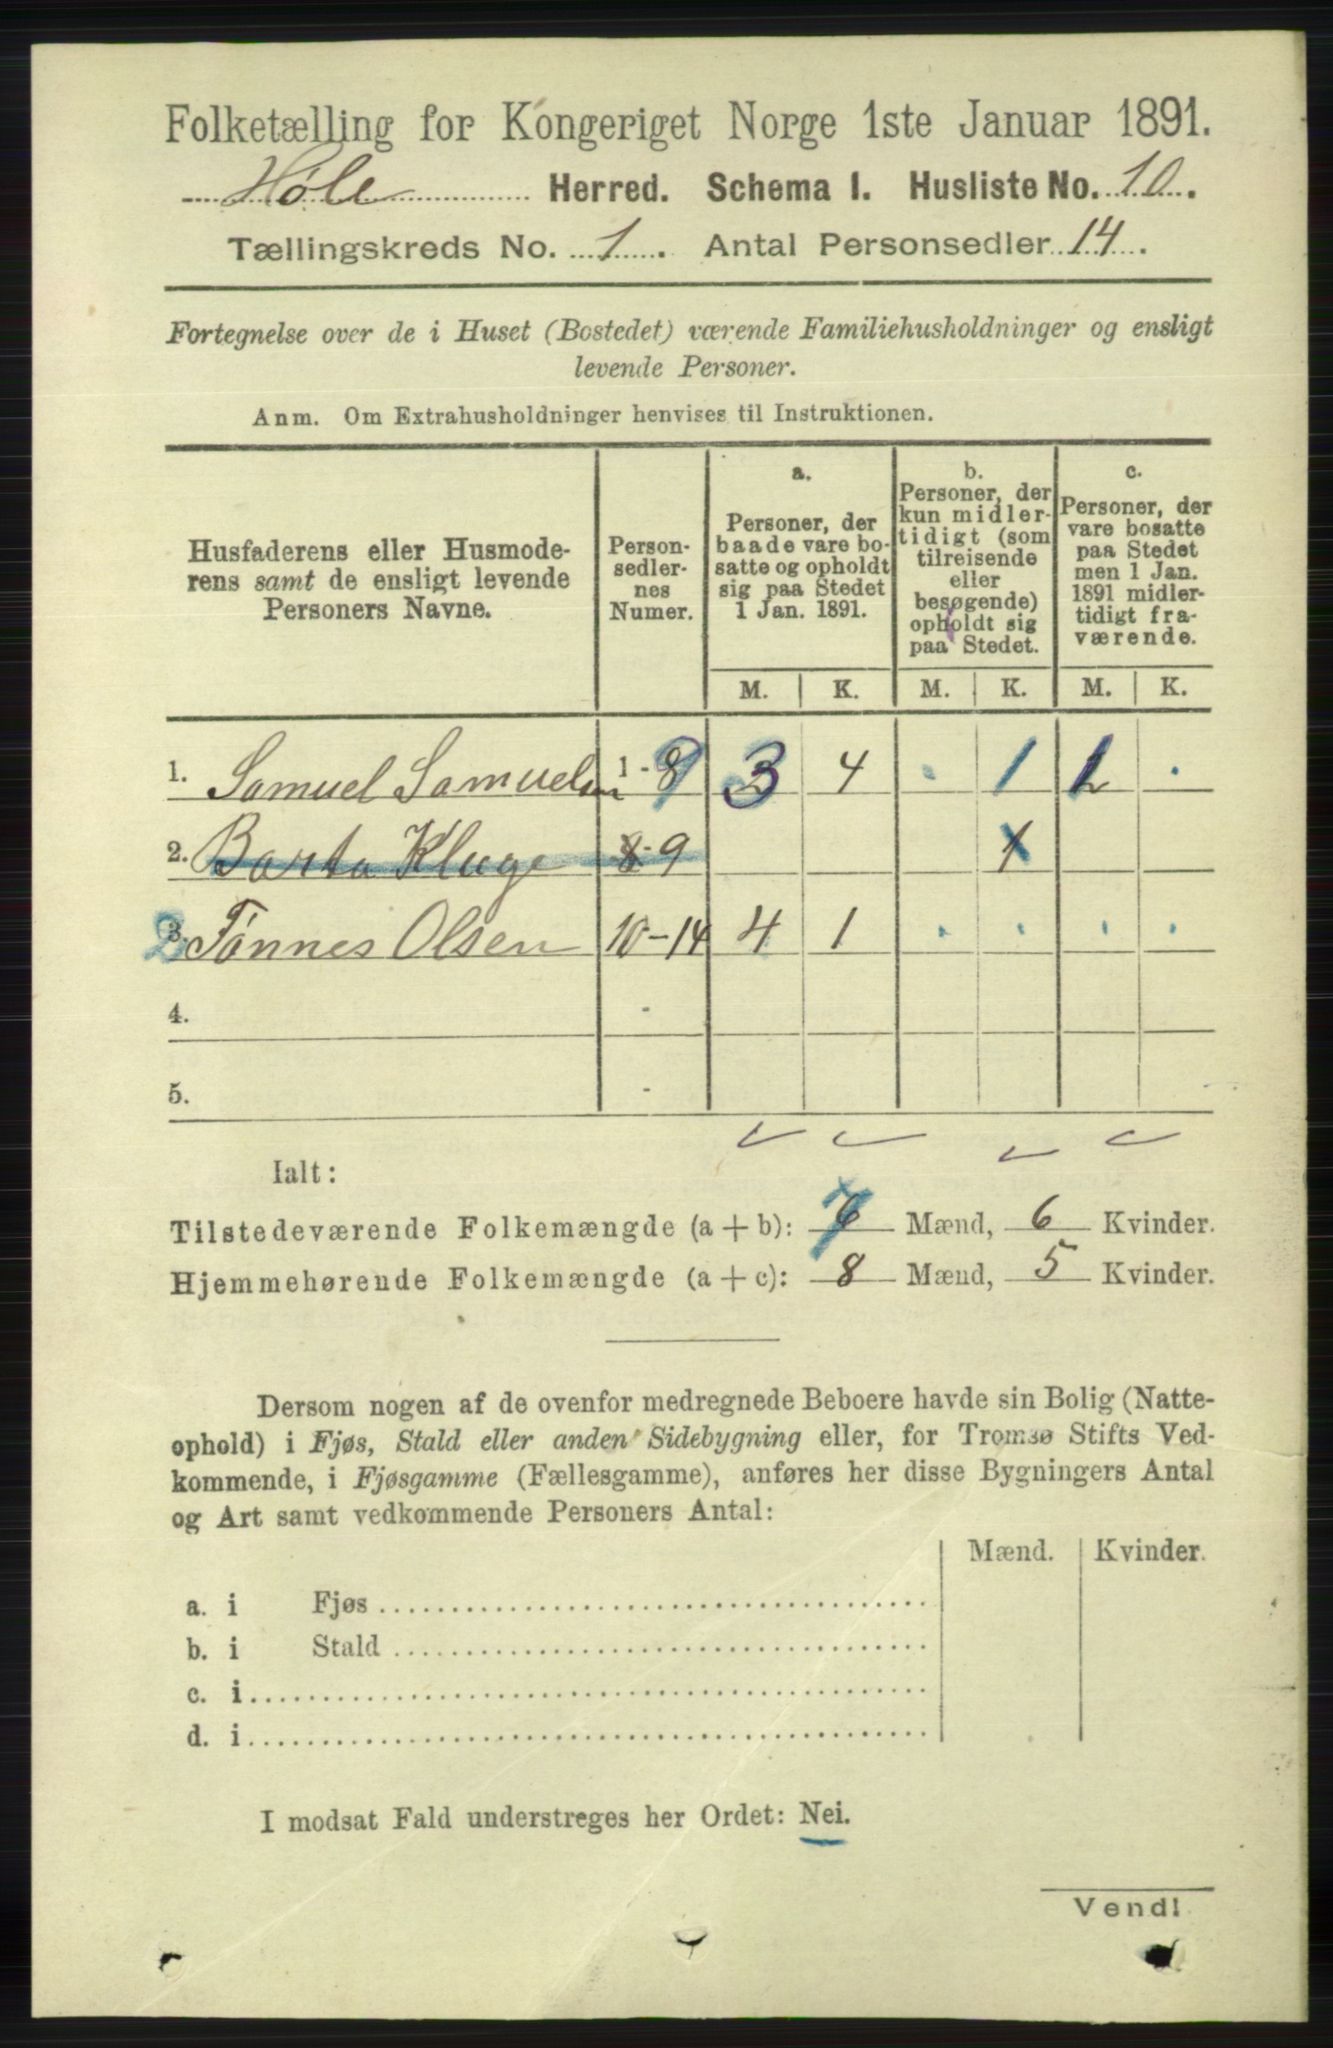 Folketælling for Kongeriget Norge 1ste Januar 1891.
Høle Herred. Schema I. Husliste No. 10.
Tællingskreds No. 1. Antal Personsedler 14.
Fortegnelse over de i Huset (Bostedet) værende Familiehusholdninger og ensligt
levende Personer.
Anm. Om Extrahusholdninger henvises til Instruktionen.
Husfaderens eller Husmode-
rens samt de ensligt levende
Personers Navne.
Person-
sedler-
nes
Numer.
a.
Personer, der
baade vare bo-
satte og opholdt
sig paa Stedet
1 Jan. 1891.
b.
Personer, der
kun midler-
tidigt (som
tilreisende
eller
besøgende)
opholdt sig
paa Stedet.
c.
Personer, der
vare bosatte
paa Stedet
men 1 Jan.
1891 midler-
tidigt fra-
værende.
M. K. M. K. M. K.
1. Samuel Samuelsen 1-9 3 4 . 1 1 .
2. Barta Kluge 8-9 1
2 3. Tønnes Olsen 10-14 4 1 . . . .
4. -
5. -
Ialt:
Tilstedeværende Folkemængde (a + b): 7 Mænd, 6 Kvinder.
Hjemmehørende Folkemængde (a + c): 8 Mænd, 5 Kvinder.
Dersom nogen af de ovenfor medregnede Beboere havde sin Bolig (Natte-
ophold) i Fjøs, Stald eller anden Sidebygning eller, for Tromsø Stifts Ved-
kommende, i Fjøsgamme (Fællesgamme), anføres her disse Bygningers Antal
og Art samt vedkommende Personers Antal:
Mænd. Kvinder.
a. i Fjøs
b. i Stald
c. i
d. i
I modsat Fald understreges her Ordet: Nei.
Vend!